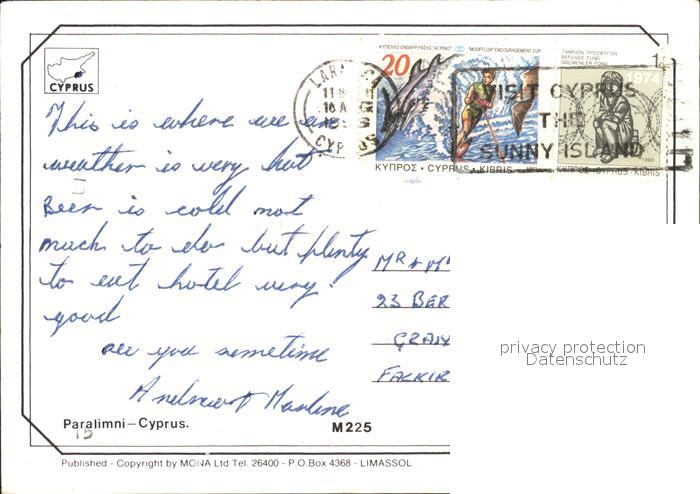 CYPRUS
ΚΥΠΕΛΛΟ ΕΝΘΑΡΡΥΝΣΗΣ "ΑΓΡΙΝΟ"
"MOUFFLON" ENCOURAGEMENT CUP
20
ΚΥΠΡΟΣ · CYPRUS · KIBRIS
ΤΑΜΕΙΟΝ ΠΡΟΣΦΥΓΩΝ
REFUGEE FUND
GÖÇMENLER FONU
1c
1974
1993
ΚΥΠΡΟΣ · CYPRUS · KIBRIS
VISIT CYPRUS
THE
SUNNY ISLAND
This is where we are
weather is very hot
Beer is cold not
much to do but plenty
to eat hotel very
good
see you sometime
Andrew + Marlene
MR + M
23 BER
GRAN
FALKIR
privacy protection
Datenschutz
Paralimni – Cyprus.
M225
15
Published - Copyright by MONA Ltd Tel. 26400 - P.O.Box 4368 - LIMASSOL